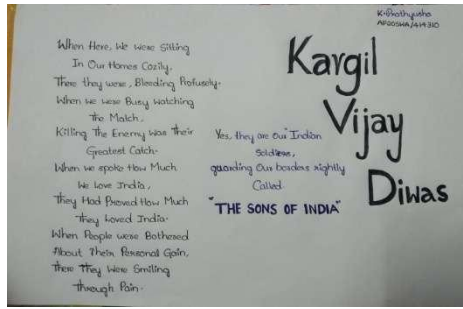 K. Prathyusha
AP20SHA/414310
Kargil
Vijay
Diwas
When Here, We were Sitting
In Our Homes Cozily,
There they were, Bleeding Profusely.
When we were Busy Watching
the Match,
Killing The Enemy Was Their
Greatest Catch.
When we spoke How Much
We Love India,
They Had Proved How Much
They Loved India.
When People were Bothered
About Their Personal Gain,
There They Were Smiling
Through Pain.
Yes, they are our Indian
Soldiers,
guarding Our borders rightly
Called.
"THE SONS OF INDIA"